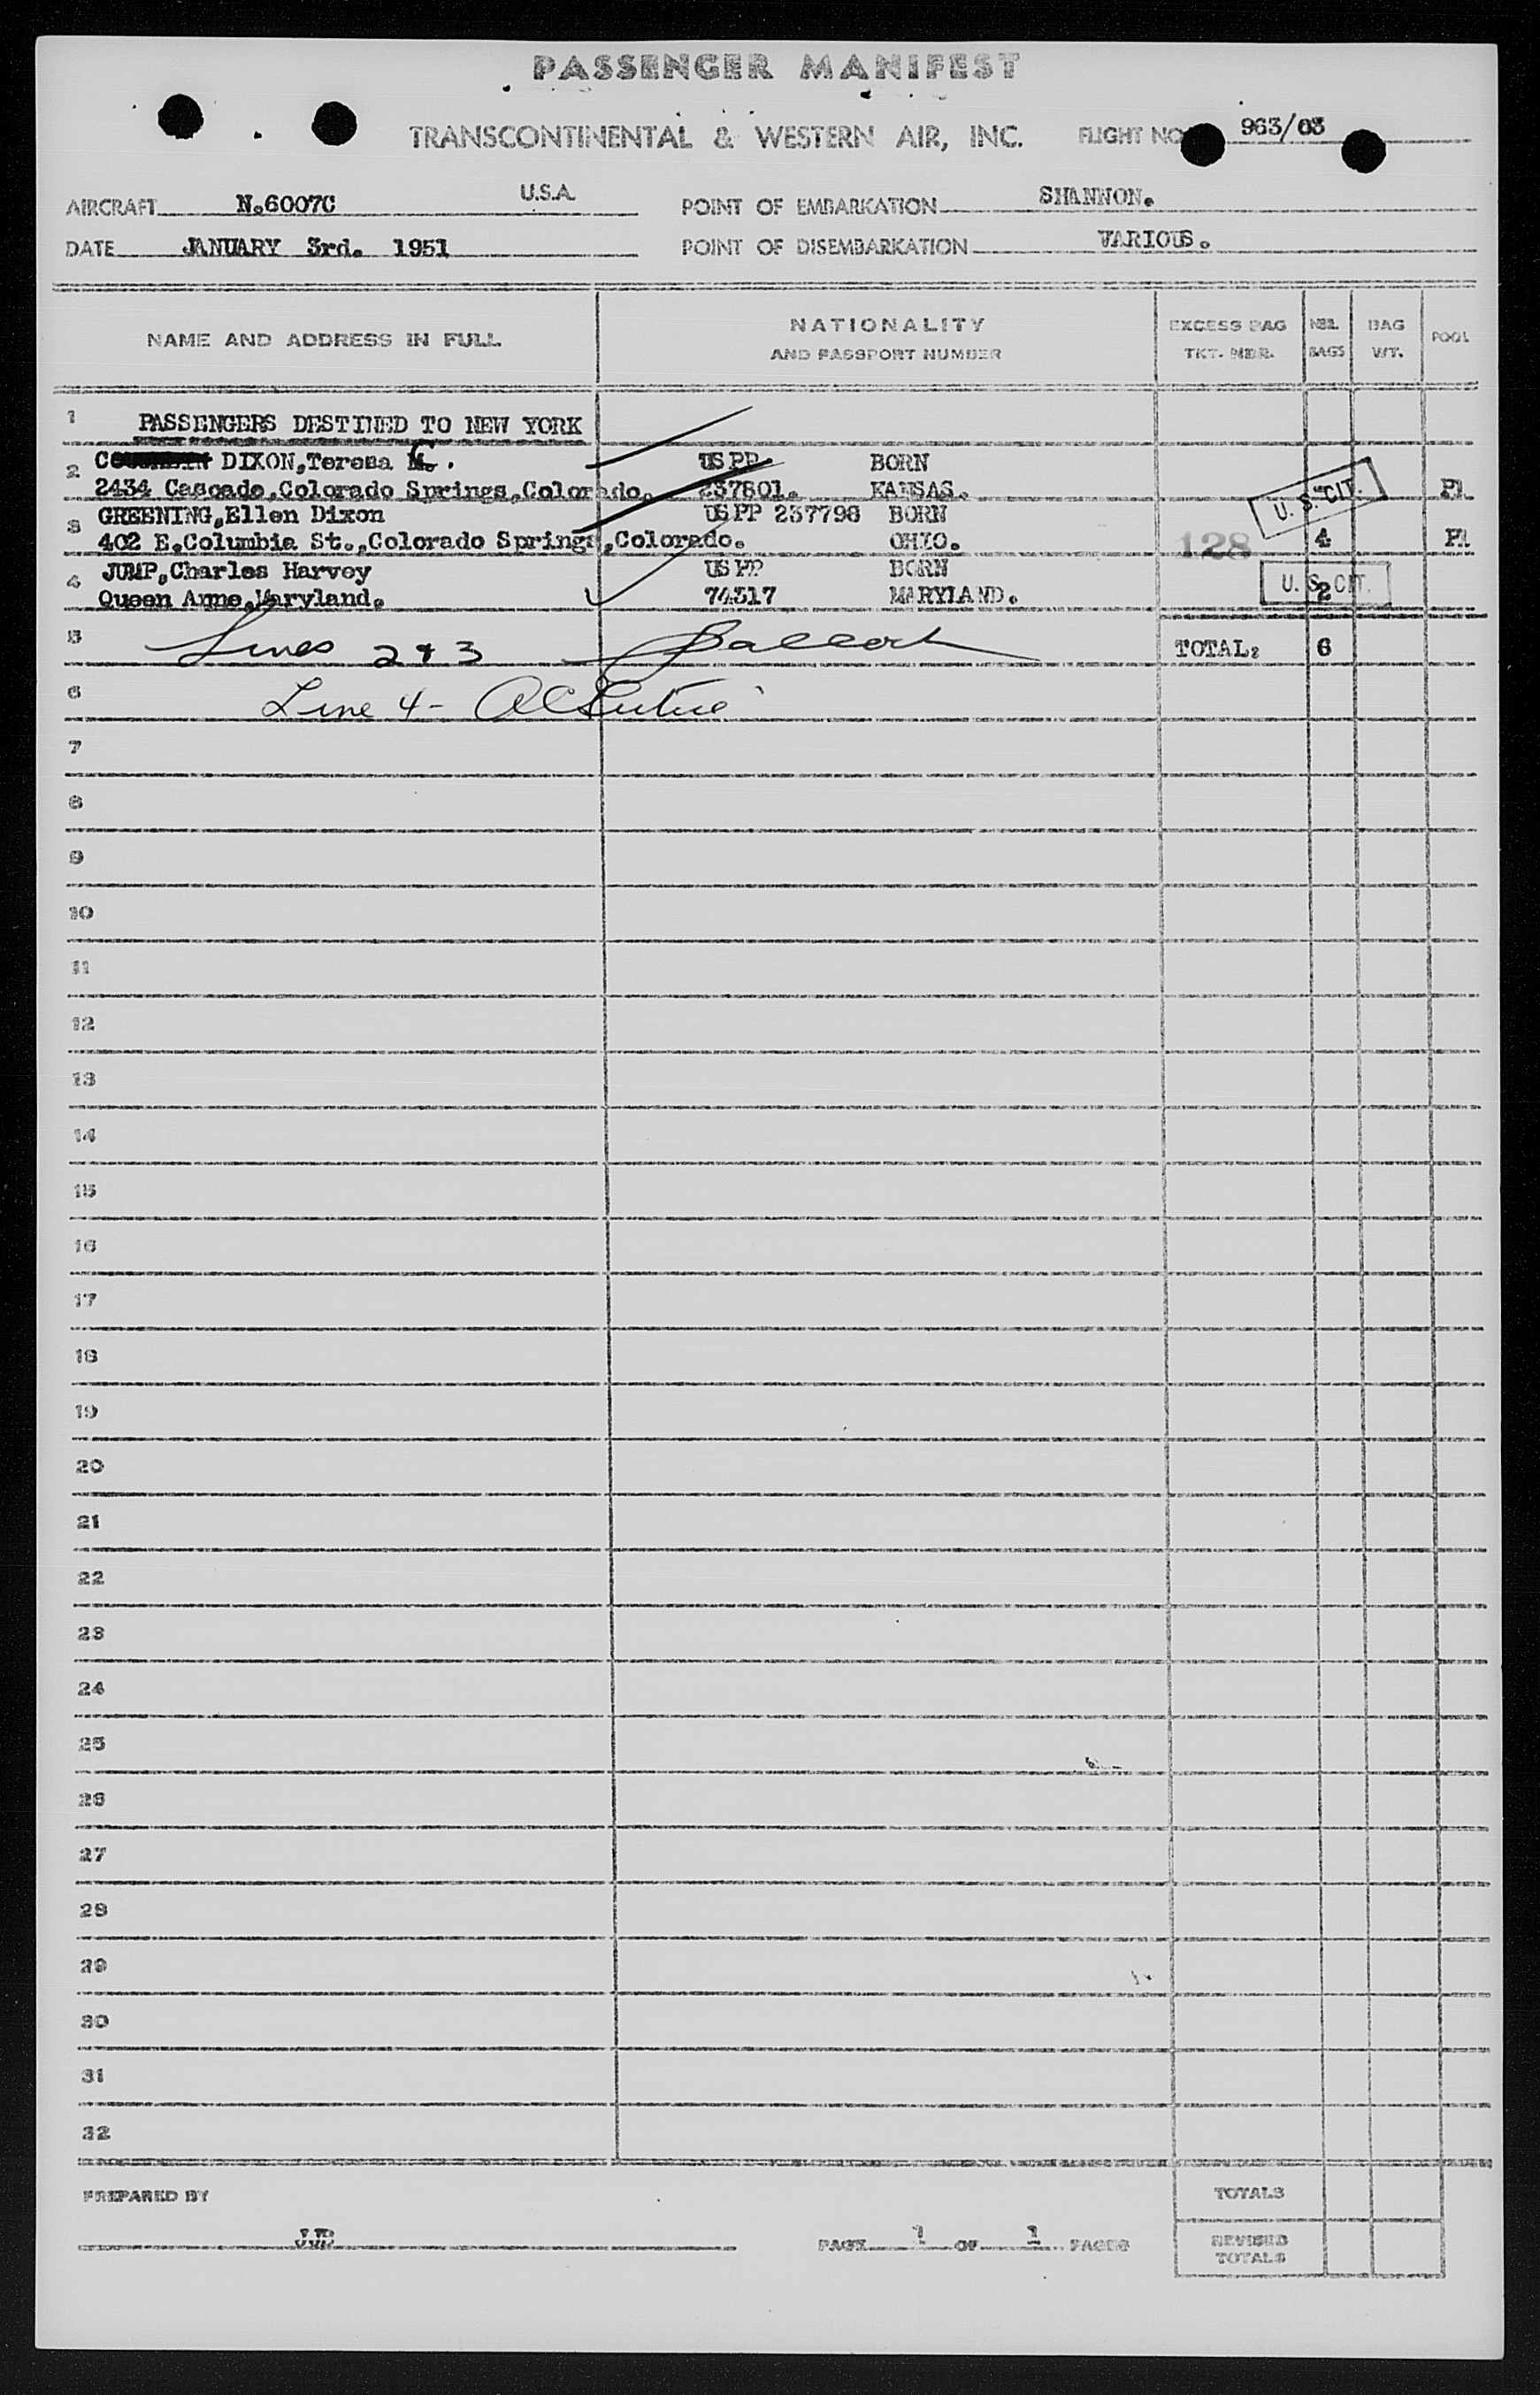 PASSENGER MANIFEST
TRANSCONTINENTAL & WESTERN AIR, INC. FLIGHT NO 963/03
AIRCRAFT N.6007C U.S.A. POINT OF EMBARKATION SHANNON.
DATE JANUARY 3rd. 1951 POINT OF DISEMBARKATION VARIOUS.
NAME AND ADDRESS IN FULL NATIONALITY AND PASSPORT NUMBER EXCESS BAG TKT. NBR. NBR. BAGS BAG WT. POOL
1 PASSENGERS DESTINED TO NEW YORK
2 DIXON,Teresa USPP. BORN
2434 Cascade,Colorado Springs,Colorado. 237801. KANSAS. U. S. CIT. P1
3 GREENING,Ellen Dixon USPP 237798 BORN
402 E.Columbia St.,Colorado Springs,Colorado. OHIO. 128 4 P1
4 JUMP,Charles Harvey USPP BORN
Queen Anne,Maryland. 74317 MARYLAND. U. S. CIT. 2
5 Lines 2 & 3 TOTAL: 6
6 Line 4 -
7
8
9
10
11
12
13
14
15
16
17
18
19
20
21
22
23
24
25
26
27
28
29
30
31
32
PREPARED BY TOTALS
JJB PAGE 1 OF 1 PAGES REVISED TOTALS